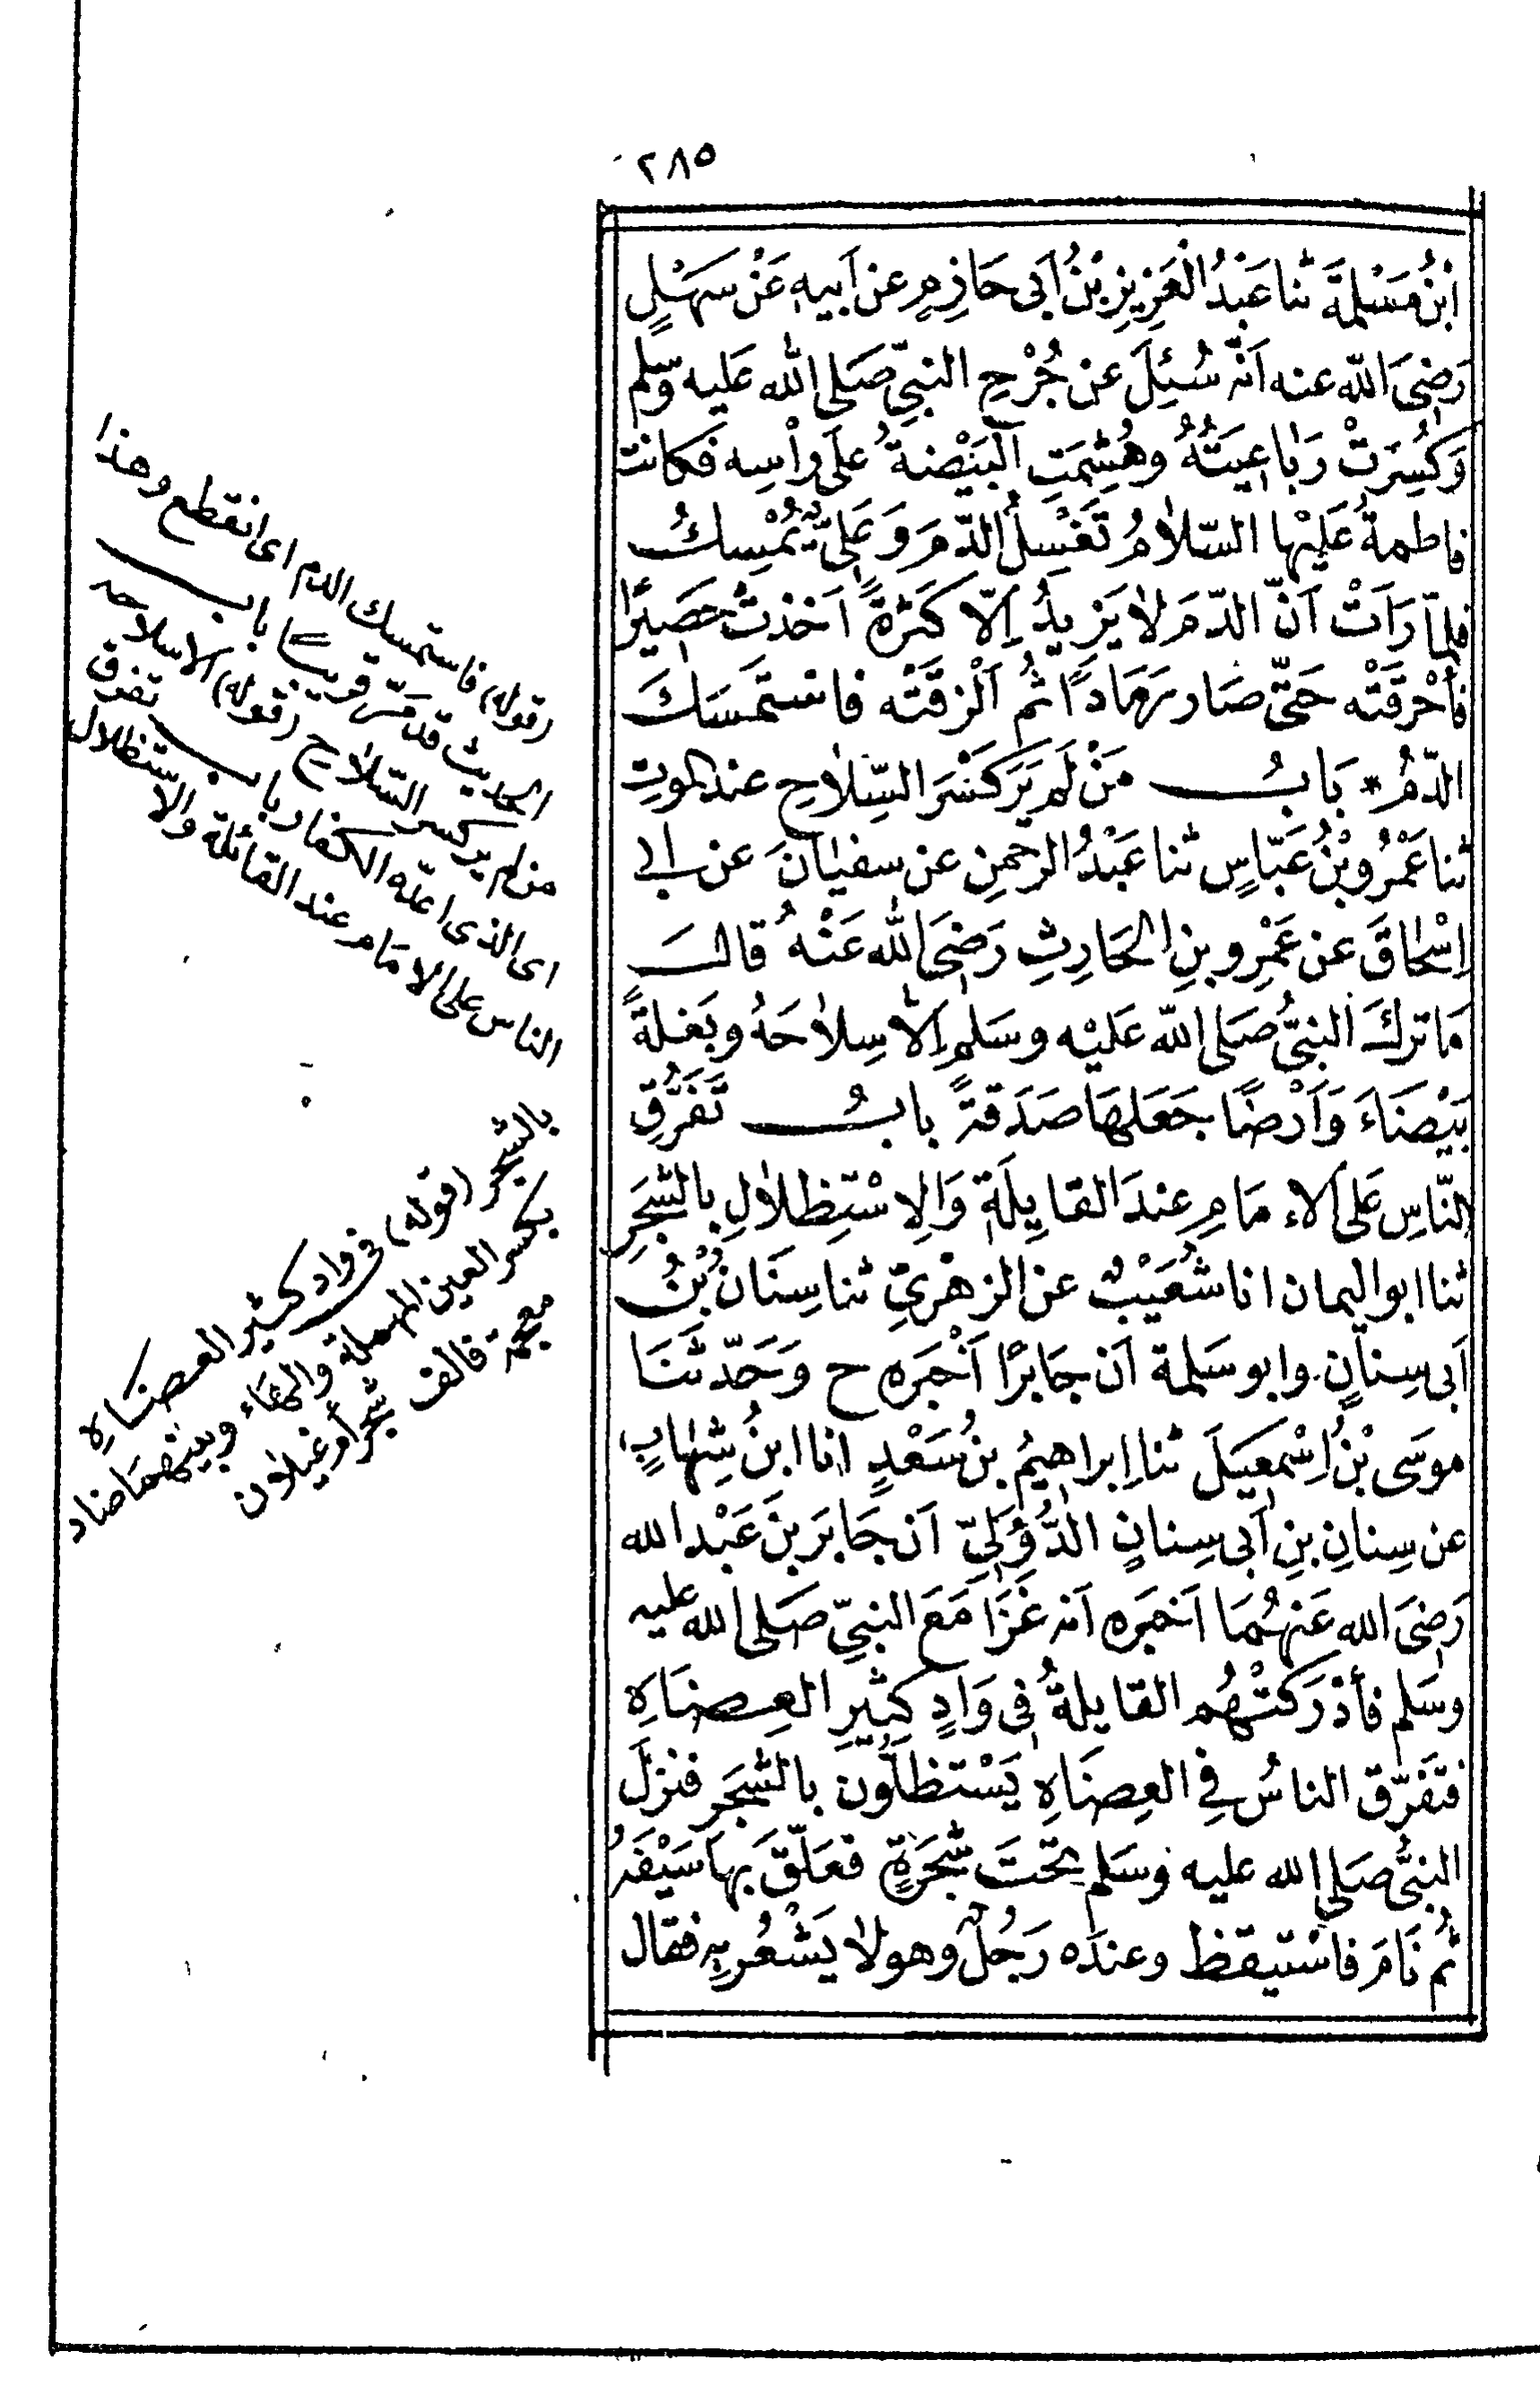 ٢٨٥
ابْنُ مَسْلمةَ ثنا عَبْدُ الْعَزِيزِ بْنُ اَبى حَازِمٍ عن اَبيهِ عَنْ سَهْلٍ
رَضِىَ اللّه عنه اَنّه سُئِلَ عن جُرْحِ النبيّ صَلى اللّه عَليه وسَلم
وَكُسِرَتْ رَبَاعِيَتُهُ وهُشِمَتِ الْبَيْضةُ عَلى رأْسِه فكانت
فاطمةُ عَلَيْها السّلامُ تَغْسِلُ الدّمَ وَعَلِىٌّ يُمْسِكُ
فلمّا رَاَتْ اَنّ الدّمَ لا يَزِيدُ اِلّا كَثْرةً اَخذتْ حَصيرًا
فأَحْرقَتْه حَتّى صَار رمَادًا ثُم اَلْزقَتْه فاسْتَمْسَكَ
الدّمُ * بَابُ مَنْ لَم يَرَ كَسْرَ السِّلاحِ عند الموتِ
ثنا عَمْرُو بْنُ عَبّاسٍ ثنا عَبْدُ الرحمنِ عن سفيانَ عن ابى
اِسْحاقَ عن عَمْرِو بنِ الحَارِثِ رَضِىَ اللّه عَنْهُ قال
مَا تركَ النبىُّ صَلى اللّه عَليْه وسَلم اِلّا سِلاحَهُ وبَغلةً
بَيْضَاءَ وَاَرْضًا جَعَلهَا صَدَقةً بابُ تَفَرُّقِ
النّاسِ عَلى الاءمَامِ عِندَ القايِلَةِ وَالاِسْتِظلالِ بالشّجَرِ
ثنا ابو اليمان انا شُعَيْبٌ عن الزهْرىِّ ثنا سِنَانُ بْنُ
اَبى سِنانٍ وابو سَلمة اَن جَابرًا اَخْبَره ح وَحَدّثنَا
موسَى بْنُ اِسْمعِيلَ ثنا اِبراهيمُ بنُ سَعْدٍ انا ابنُ شِهَابٍ
عن سِنانِ بنِ اَبى سِنانٍ الدُّؤَلِىِّ اَن جَابرَ بنَ عَبْد الله
رَضِىَ الله عَنهُمَا اَخبَره اَنه غَزَا مَعَ النبىّ صَلى الله عليه
وسَلم فأدْرَكتْهُم القايلةُ فى وَادٍ كثِيرِ العِضَاهِ
فتَفَرّق الناسُ فِى العِضَاهِ يَسْتظلّون بالشجَرِ فنزلَ
النبىُّ صَلى الله عليه وسَلم تحتَ شجَرَةٍ فعَلّقَ بهَا سَيْفَهُ
ثُم نَامَ فاسْتيقظ وعندَه رَجُلٌ وهو لا يَشْعُر بِه فقال
(قوله) فاستمسك الدم اى انقطع وهذا
الحديث قد مَرّ قريبًا باب
من لم ير كسر السّلاح (قوله) الا سلاحه
اى الذى اعدّه للكفار باب تفرق
الناس على الامَام عند القائلة والاستظلال
بالشجر (قوله) فى واد كثير العضَاهِ
بكسر العين المهملة والهَاء وبينهمَا ضاد
معجمة فالف شجر أم غيلان